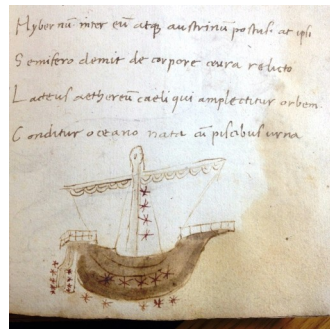 Hybernũ inter eũ atq; austrinũ postus. at ipsi
Semifero demit de corpore crura relicto
Lacteus aethereũ caeli qui amplectitur orbem.
Conditur oceano nata cũ piscibus urna